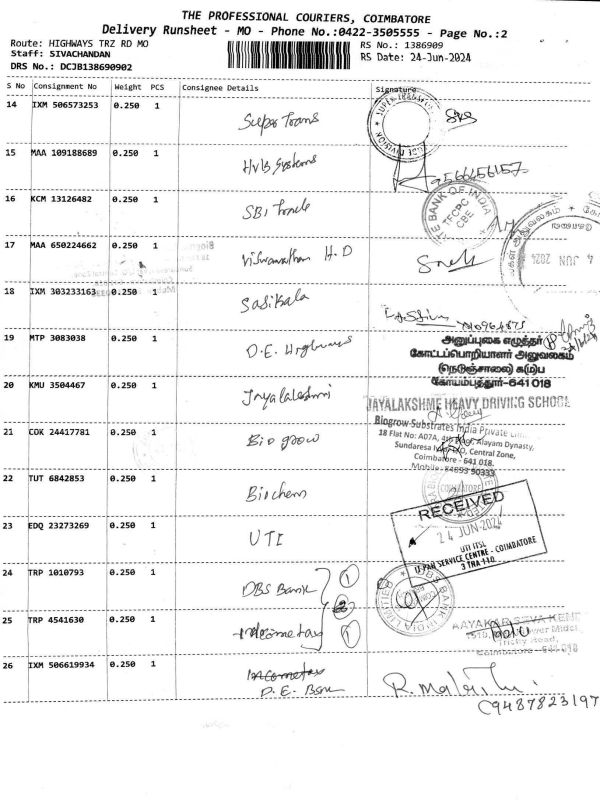 THE PROFESSIONAL COURIERS, COIMBATORE
Delivery Runsheet - MO - Phone No.:0422-3505555 - Page No.:2
Route: HIGHWAYS TRZ RD MO
RS No.: 1386909
Staff: SIVACHANDAN
RS Date: 24-Jun-2024
DRS No.: DCJB138690902
S No Consignment No Weight PCS Consignee Details Signature
14 IXM 506573253 0.250 1 Super Trans
15 MAA 109188689 0.250 1 HVB Systems
9566456157
16 KCM 13126482 0.250 1 SBI Trade
THE BANK OF INDIA
TFCPC
CBE
17 MAA 650224662 0.250 1 Viswanathan H.D
4 JUN 2024
18 IXM 303233163 0.250 1 Sasikala
19 MTP 3083038 0.250 1 D.E. Highways
அனுப்புகை எழுத்தர்
கோட்டப்பொறியாளர் அலுவலகம்
(நெடுஞ்சாலை) க(ம)ப
கோயம்புத்தூர்-641 018
20 KMU 3504467 0.250 1 Jayalakshmi
JAYALAKSHME HEAVY DRIVING SCHOOL
21 COK 24417781 0.250 1 Bio grow
Biogrow Substrates India Private
18 Flat No: A07A, Alayam Dynasty,
Central Zone,
Coimbatore - 641 018.
Mobile- 84893 50333
22 TUT 6842853 0.250 1 Biochem
COIMBATORE
23 EDQ 23273269 0.250 1 UTI
RECEIVED
24 JUN 2024
UTI ITSL
IT PAN SERVICE CENTRE - COIMBATORE
24 TRP 1010793 0.250 1 DBS Bank 1
DBS BANK INDIA LIMITED
25 TRP 4541630 0.250 1 Incometax 1
AAYAKAR SEVA KEND
Road,
Coimbatore - 641 018
26 IXM 506619934 0.250 1 Incometax
(9487823197